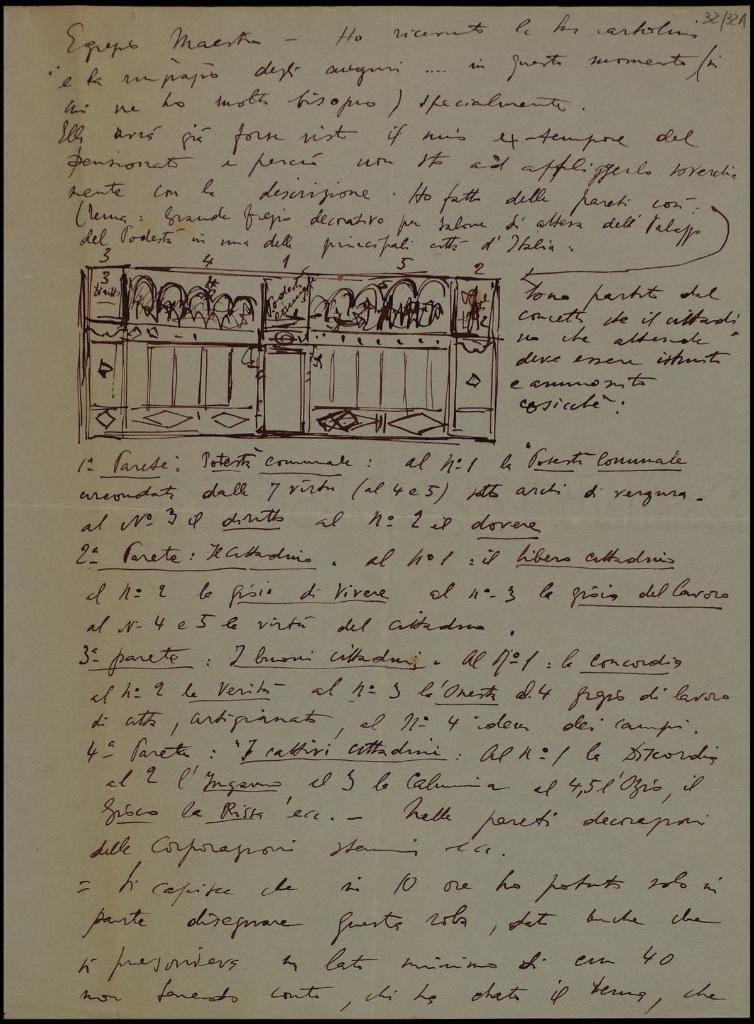 32/32A
Egregio Maestro – Ho ricevuto la sua cartolina
e la ringrazio degli auguri .... in questo momento (in
cui ne ho molto bisogno) specialmente.
Ella avrà già forse visto il mio ex-tempore del
Pensionato e perciò non sto ad affliggerlo soverchia
mente con la descrizione. Ho fatto delle pareti così:
(Tema: Grande fregio decorativo per salone di attesa dell' Palazzo
del Podestà in una delle principali città d'Italia.
3 4 1 5 2
3
Diritto
Podestà
Comunale
Sono partito dal
concetto che il cittadi
no che attende
deve essere istruito
e ammonito
cosicchè:
1ª Parete: Potestà comunale: al Nº 1 la "Potestà Comunale
circondata dalle 7 virtù (al 4 e 5) sotto archi di verzura.
al Nº 3 il diritto al Nº 2 il dovere
2ª Parete: Il Cittadino. al Nº 1: il libero cittadino
al Nº 2 la gioia di Vivere al nº 3 la gioia del lavoro
al N. 4 e 5 le virtù del cittadino.
3ª parete: I buoni cittadini. Al Nº 1: la Concordia
al Nº 2 la Verità al Nº 3 l'Onestà al 4 fregio di lavoro
di città, artigianato, al Nº 4 idem dei campi.
4ª Parete: "I cattivi cittadini: Al Nº 1 la Discordia
al 2 l'Inganno al 3 la Calunnia al 4,5 l'Ozio, il
Gioco la Rissa ecc. – Nelle pareti decorazioni
delle Corporazioni stemmi ecc.
= Si capisce che in 10 ore ho potuto solo in
parte disegnare questa roba, dato anche che
si prescriveva un lato minimo di cm 40
non tenendo conto, chi ha dato il tema, che